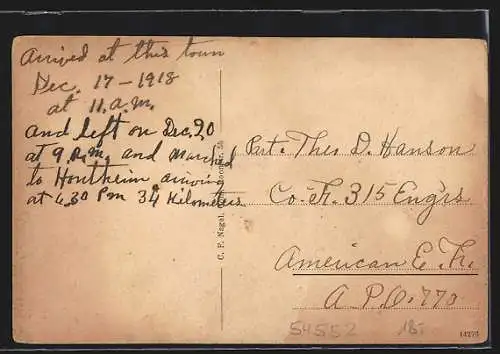 Arrived at this town
Dec. 17-1918
at 11.a.m.
and left on Dec. 20
at 9 a.m. and marched
to Hontheim arriving
at 4.30 Pm 34 Kilometers
Pvt. Theo D. Hanson
Co. F. 315 Engrs
American E. F.
A.P.O. 770
C. F. Nagel,
54552 18T
14275